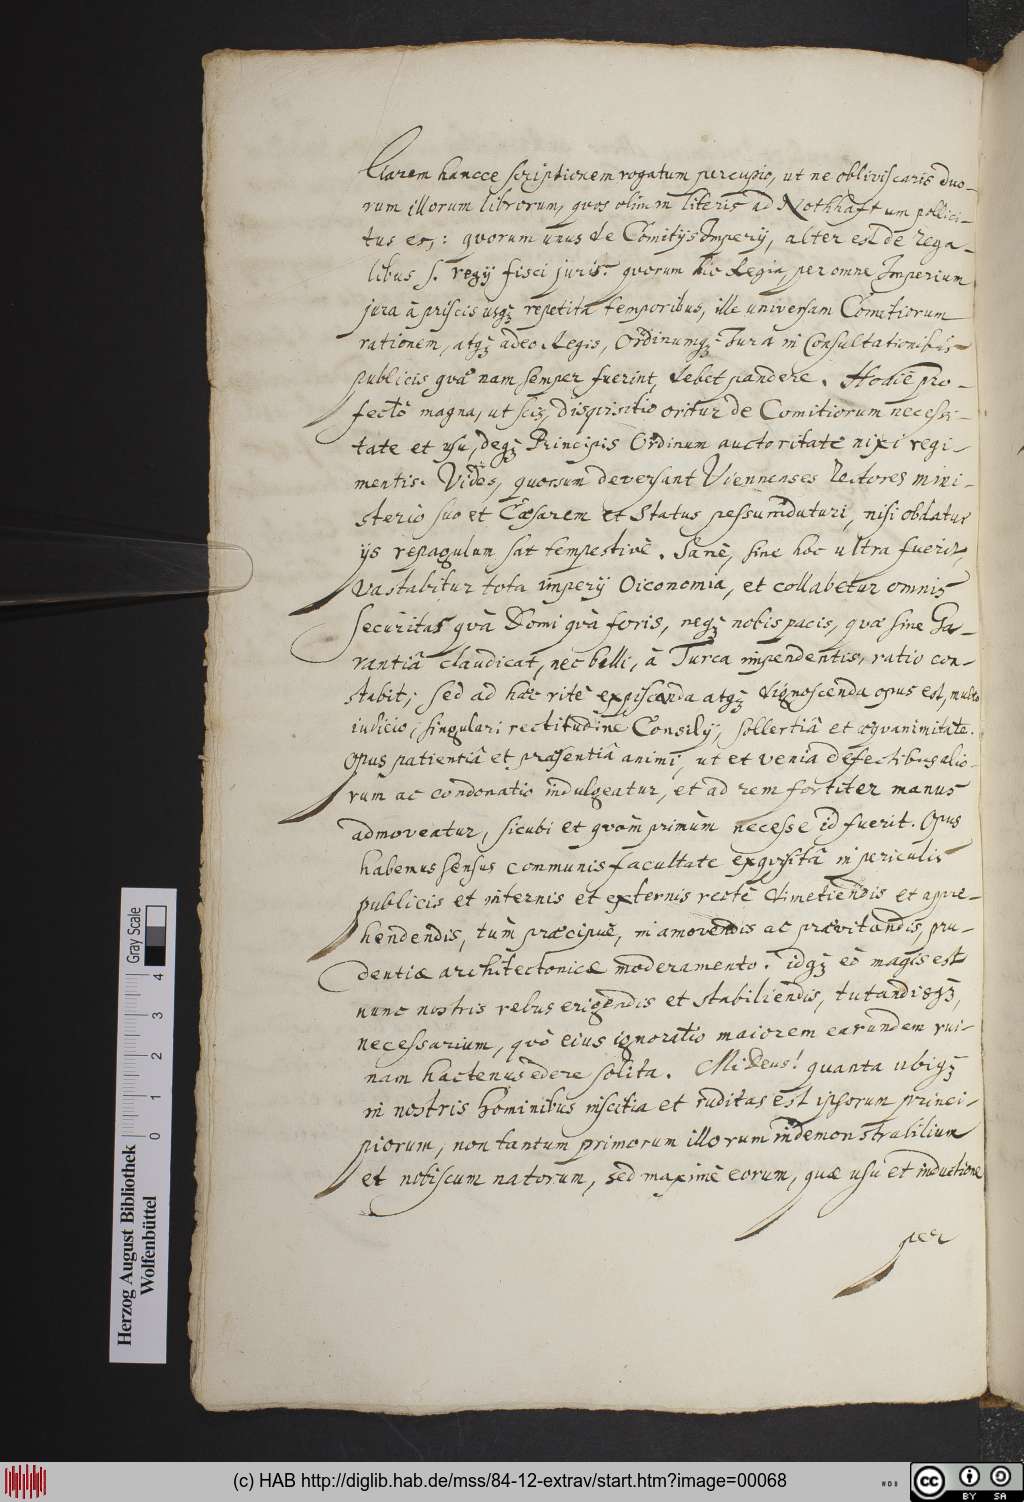 Clarem hancce scriptionem rogatum percupio, ut ne obliviscaris duo-
rum illorum librorum, quos olim in literis ad Nothhaftum pollici-
tus es,: quorum unus de Comitijs Imperij, alter est de rega-
libus s. regij fisci juris: quorum hic Regia, per omne Imperium
jura à priscis usq repetita temporibus, ille universam Comitiorum
rationem, atq adeo Regis, Ordinumq Jura in Consultationibus
publicis quænam semper fuerint, debet pandere. Hodiè pro-
fectò magna, ut scis, disquisitio oritur de Comitiorum necessi-
tate et usu, deq Principis Ordinum auctoritate nixi regi-
mentis. Vides, quorsum deversant Viennenses Rectores mini-
sterio suo et Cæsarem et Status pessumduturi, nisi obdatur
ijs repagulum sat tempestivè. Sanè, sine hoc ultra fuerit,
vastabitur tota imperij Oiconomia, et collabetur omnis
Securitas quà Domi quà foris, neq nobis pacis, quæ sine Ga-
rantiâ claudicat, nec belli, à Turca impendentis, ratio con-
stabit; Sed ad hæc ritè expiscenda atq dignoscenda opus est, multo
iudicio, singulari rectitudine Consilij, sollertiâ et æquanimitate.
Opus patientiâ et præsentiâ animi, ut et venia defectibus alio-
rum ac condonatio indulgeatur, et ad rem fortiter manus
admoveatur, sicubi et quàm primùm necesse id fuerit. Opus
habemus sensus communis facultate exquisitâ in periculis
publicis et internis et externis rectè dimetiendis et apre-
hendendis, tùm præcipuè, in amovendis ac prævitandis, pru-
dentiæ architectonicæ moderamento. idq eò magis est
nunc nostris rebus erigendis et stabiliendis, tutandisq,
necessarium, quò eius ignoratio maiorem earundem rui-
nam hactenus edere solita. Mi Deus! quanta ubiq
in nostris hominibus inscitia et ruditas est ipsorum princi-
piorum, non tantum primorum illorum indemonstrabilium
et nobiscum natorum, sed maximè eorum, quæ usu et inductione
per
Herzog August Bibliothek
Wolfenbüttel
0 1 2 3 4
Gray Scale
(c) HAB http://diglib.hab.de/mss/84-12-extrav/start.htm?image=00068
cc BY SA